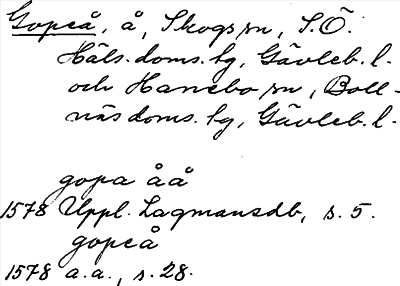 Gopeå, å, Skogs sn, S.Ö.
Häls. doms. hg, Gävleb. l.
och Hanebo sn, Boll-
näs doms. hg, Gävleb. l.
gopa åå
1578 Uppl. Lagmansdb, s. 5.
gopeå
1578 a.a., s. 28.